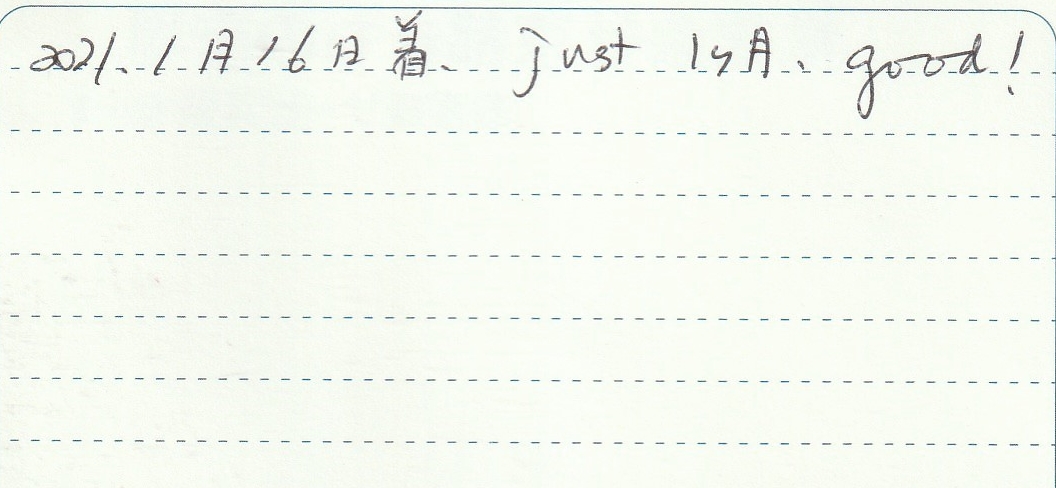 2021.1月16日着、just 1ヶ月、good!